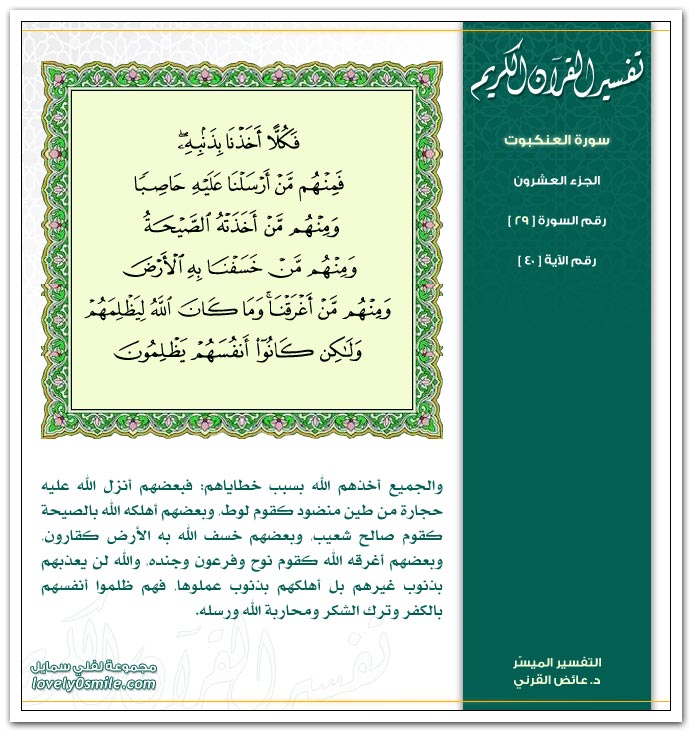 تفسير القرآن الكريم
سورة العنكبوت
الجزء العشرون
رقم السورة [ ٢٩ ]
رقم الآية [ ٤٠ ]
فَكُلًّا أَخَذْنَا بِذَنۢبِهِۦۖ
فَمِنْهُم مَّنْ أَرْسَلْنَا عَلَيْهِ حَاصِبًا
وَمِنْهُم مَّنْ أَخَذَتْهُ ٱلصَّيْحَةُ
وَمِنْهُم مَّنْ خَسَفْنَا بِهِ ٱلْأَرْضَ
وَمِنْهُم مَّنْ أَغْرَقْنَاۚ وَمَا كَانَ ٱللَّهُ لِيَظْلِمَهُمْ
وَلَٰكِن كَانُوٓا۟ أَنفُسَهُمْ يَظْلِمُونَ
والجميع أخذهم الله بسبب خطاياهم: فبعضهم أنزل الله عليه
حجارة من طين منضود كقوم لوط، وبعضهم أهلكه الله بالصيحة
كقوم صالح شعيب، وبعضهم خسف الله به الأرض كقارون،
وبعضهم أغرقه الله كقوم نوح وفرعون وجنده، والله لن يعذبهم
بذنوب غيرهم بل أهلكهم بذنوب عملوها، فهم ظلموا أنفسهم
بالكفر وترك الشكر ومحاربة الله ورسله.
تفسير القرآن الكريم
التفسير الميسّر
د. عائض القرني
مجموعة لفلي سمايل
lovely0smile.com